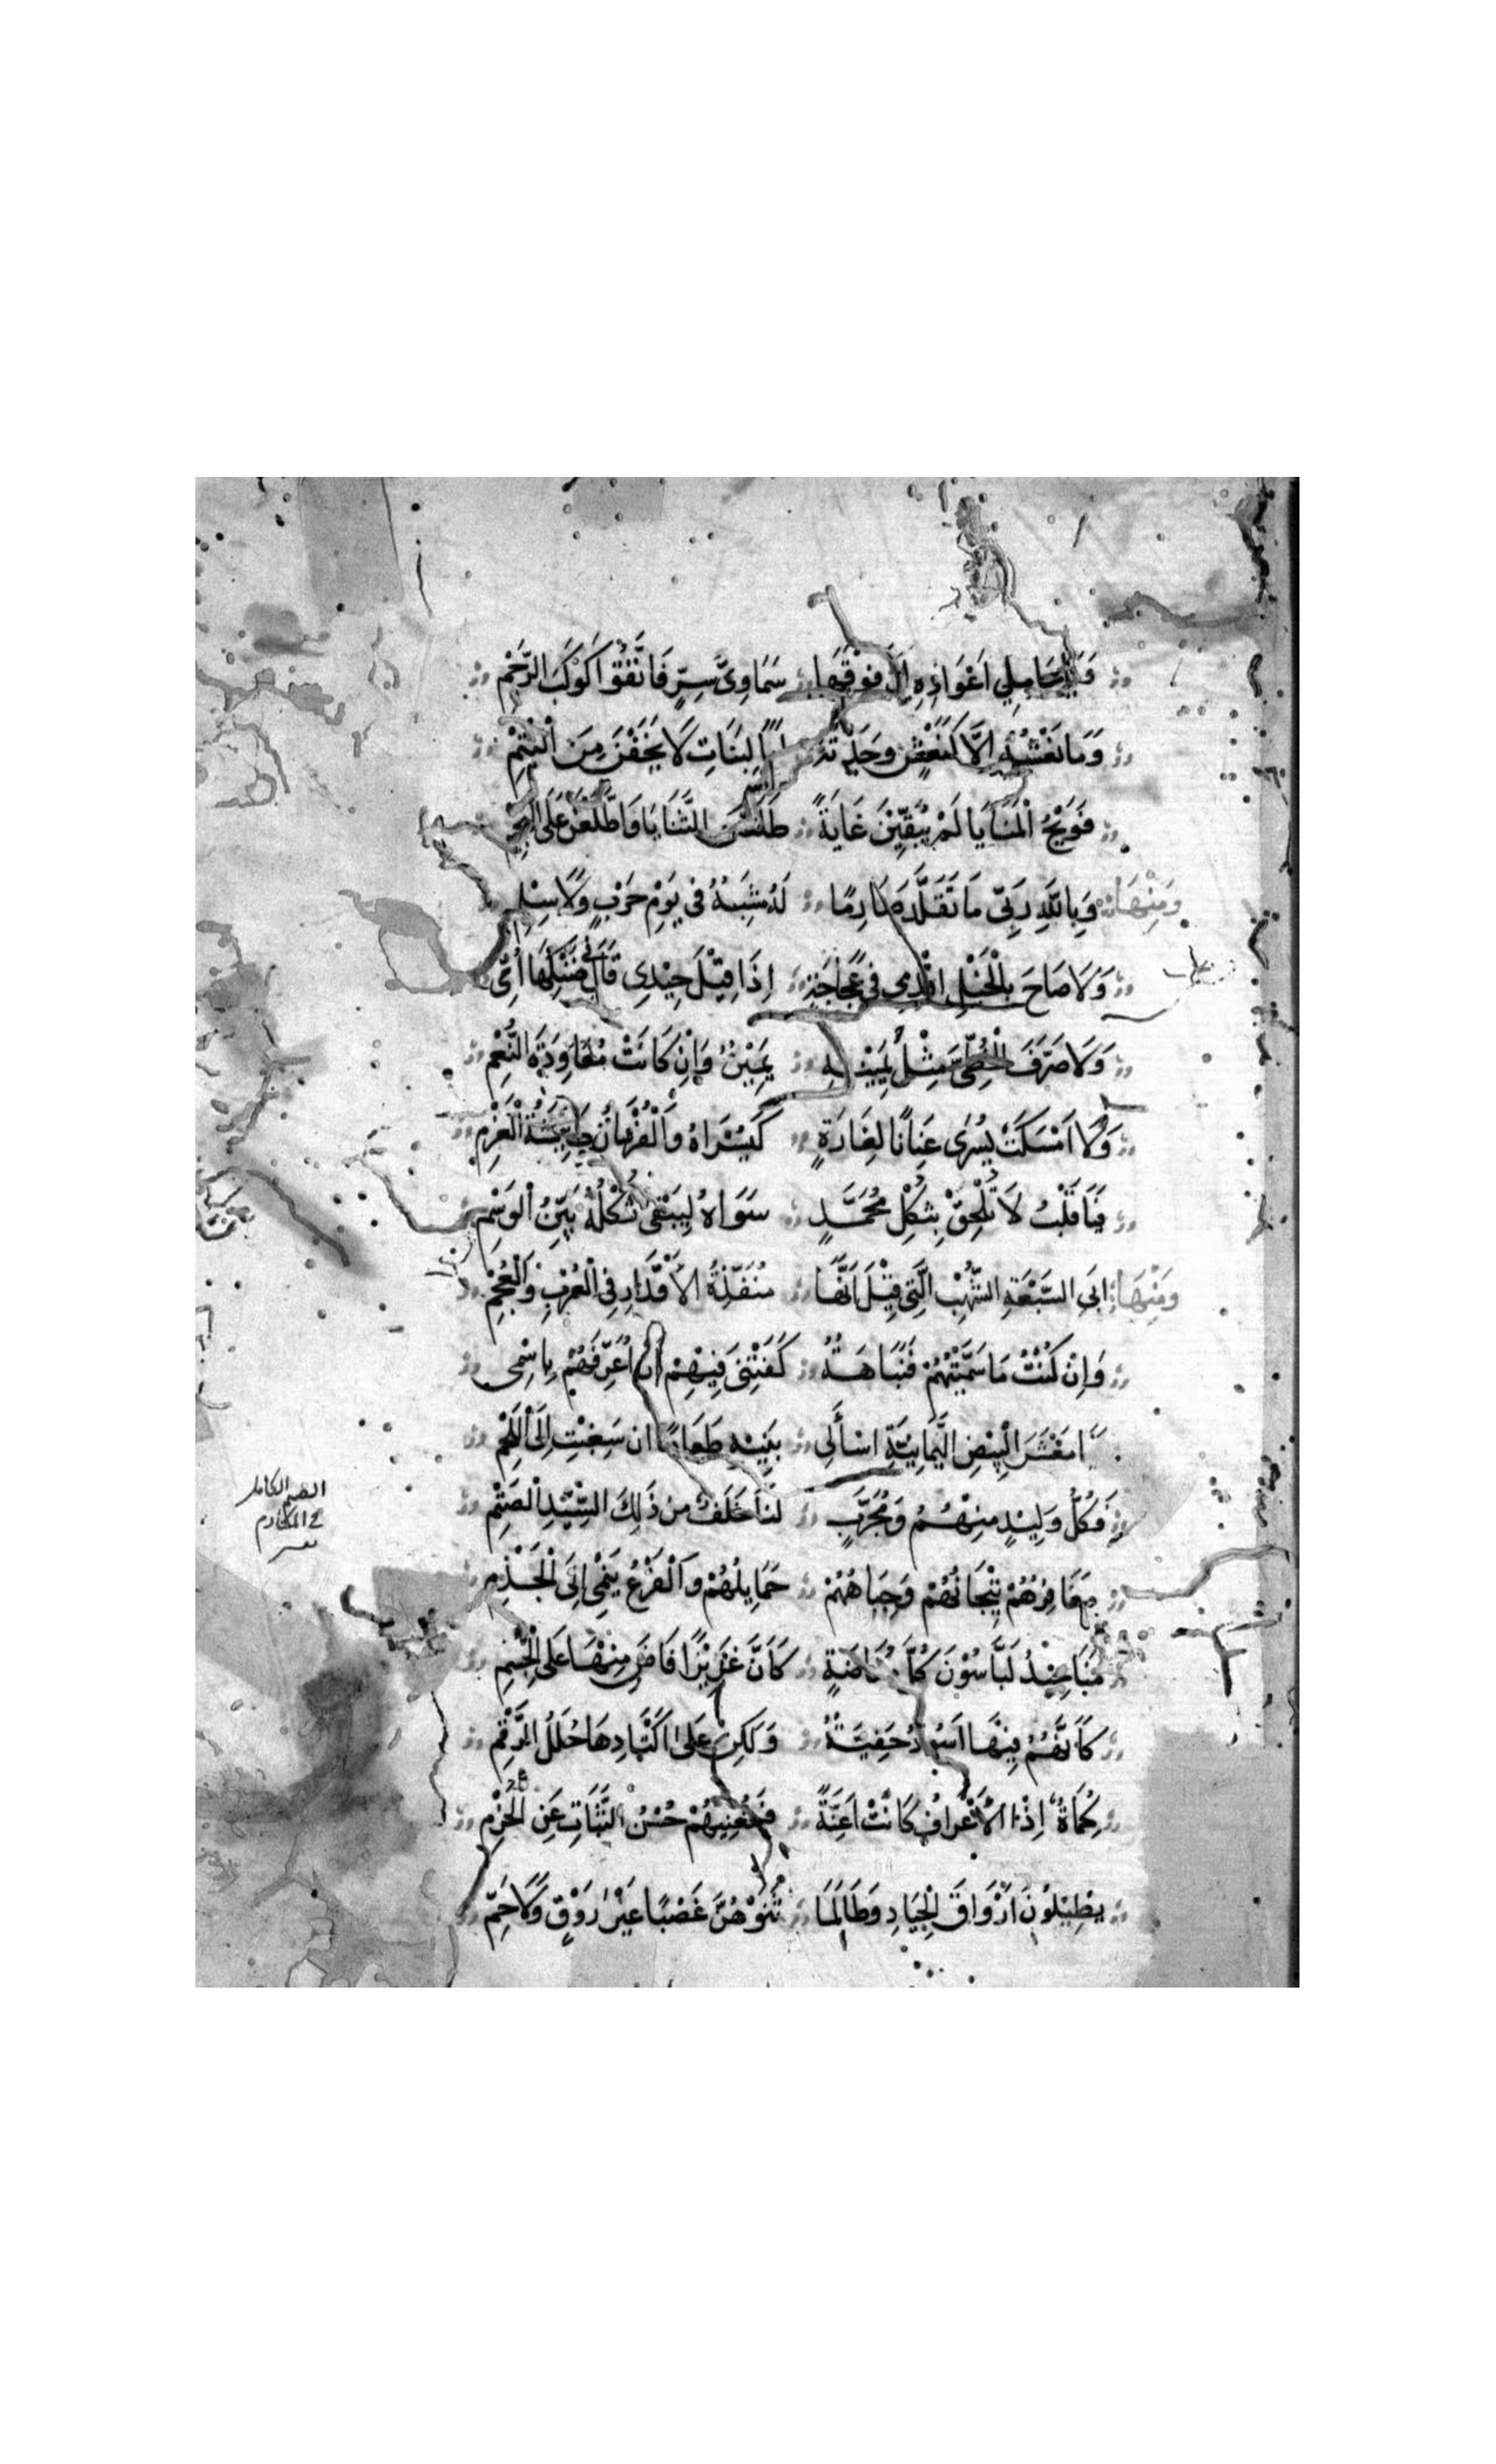 فَيَا حَامِلِي أَعْوَادِهِ إِنَّ فَوْقَهَا سَمَاوِيَّ سِرٍّ فَاتَّقُوا كَوْكَبَ الرَّجْمِ
وَمَا نَعْشُهُ إِلَّا كَنَعْشٍ وَجَدْتُهُ لِبَنَاتٍ لَا يَخَفْنَ مِنَ الْيُتْمِ
فَوَيْحُ الْمَنَايَا لَمْ يُبَقِّيْنَ غَايَةً طَلَعْنَ الثَّنَايَا وَاطَّلَعْنَ عَلَى النَّجْمِ
وَمِنْهَا وَبِاللَّهِ رَبِّي مَا تَقَلَّدَ صَارِمًا لَهُ مُشْبِهٌ فِي يَوْمِ حَرْبٍ وَلَا سِلْمِ
وَلَا صَاحَ بِالْخَيْلِ اقْدُمِي فِي عَجَاجَةٍ إِذَا قِيْلَ حِيْدِي قَالَ فِي ضَنْكِهَا أُمِّي
وَلَا صَرَّفَ الْخَطِّيَّ مِثْلَ يَمِيْنِهِ يَمِيْنٌ وَإِنْ كَانَتْ مُعَاوَدَةَ النُّعْمِ
وَلَا أَمْسَكَتْ يُسْرَى عِنَانًا لِغَارَةٍ كَيُسْرَاهُ وَالْفُرْسَانُ طَائِشَةُ الْعَزْمِ
فَيَا قَلْبُ لَا تُلْحِقْ بِثُكْلِ مُحَمَّدٍ سَوَاهُ لِيَبْقَى ثُكْلُهُ بَيِّنَ الْوَسْمِ
وَمِنْهَا أَبِي السَّبْعَةِ الشُّهْبِ الَّتِي قِيْلَ أَنَّهَا مُنَفِّذَةُ الْأَقْدَارِ فِي الْعُرْبِ وَالْعُجْمِ
وَإِنْ كُنْتُ مَا سَمَّيْتُهُمْ فَنَبَاهَةٌ كَفَتْنِي فِيهِمْ أَنْ أُعَرِّفَهُمْ بِاسْمِي
يَا مَعْشَرَ الْبِيْضِ الْيَمَانِيَّةِ اسْأَلِي بَنِيْهِ طَعَامًا إِنْ سَغِبْتِ إِلَى اللَّحْمِ
فَكُلُّ وَلِيْدٍ مِنْهُمُ وَمُجَرَّبٍ لَنَا خَلَفٌ مِنْ ذَلِكَ السَّيِّدِ الصَّتْمِ
الصتم الكامل
في المكارم
مَغَافِرُهُمْ تِيْجَانُهُمْ وَحِبَاهُمُ حَمَايِلُهُمْ وَالْفَرْعُ يَنْمِي إِلَى الْجَذْمِ
مَنَاجِيْدُ لَبَّاسُوْنَ كُلَّ مُفَاضَةٍ كَأَنَّ غَدِيْرًا فَاضَ مِنْهَا عَلَى الْجِسْمِ
كَأَنَّهُمُ فِيْهَا أُسُوْدُ خَفِيَّةٍ وَلَكِنْ عَلَى أَكْتَادِهَا حُلَلُ الرُّقْمِ
كُمَاةٌ إِذَا الْأَعْرَافُ كَانَتْ أَعِنَّةً فَمُغْنِيْهِمُ حُسْنُ الثَّبَاتِ عَنِ الْحُزْمِ
يُطِيْلُونَ أَرْوَاقَ الْجِيَادِ وَطَالَمَا ثَنَوْهُنَّ عَضْبًا غَيْرَ رَوْقٍ وَلَا جَمِّ